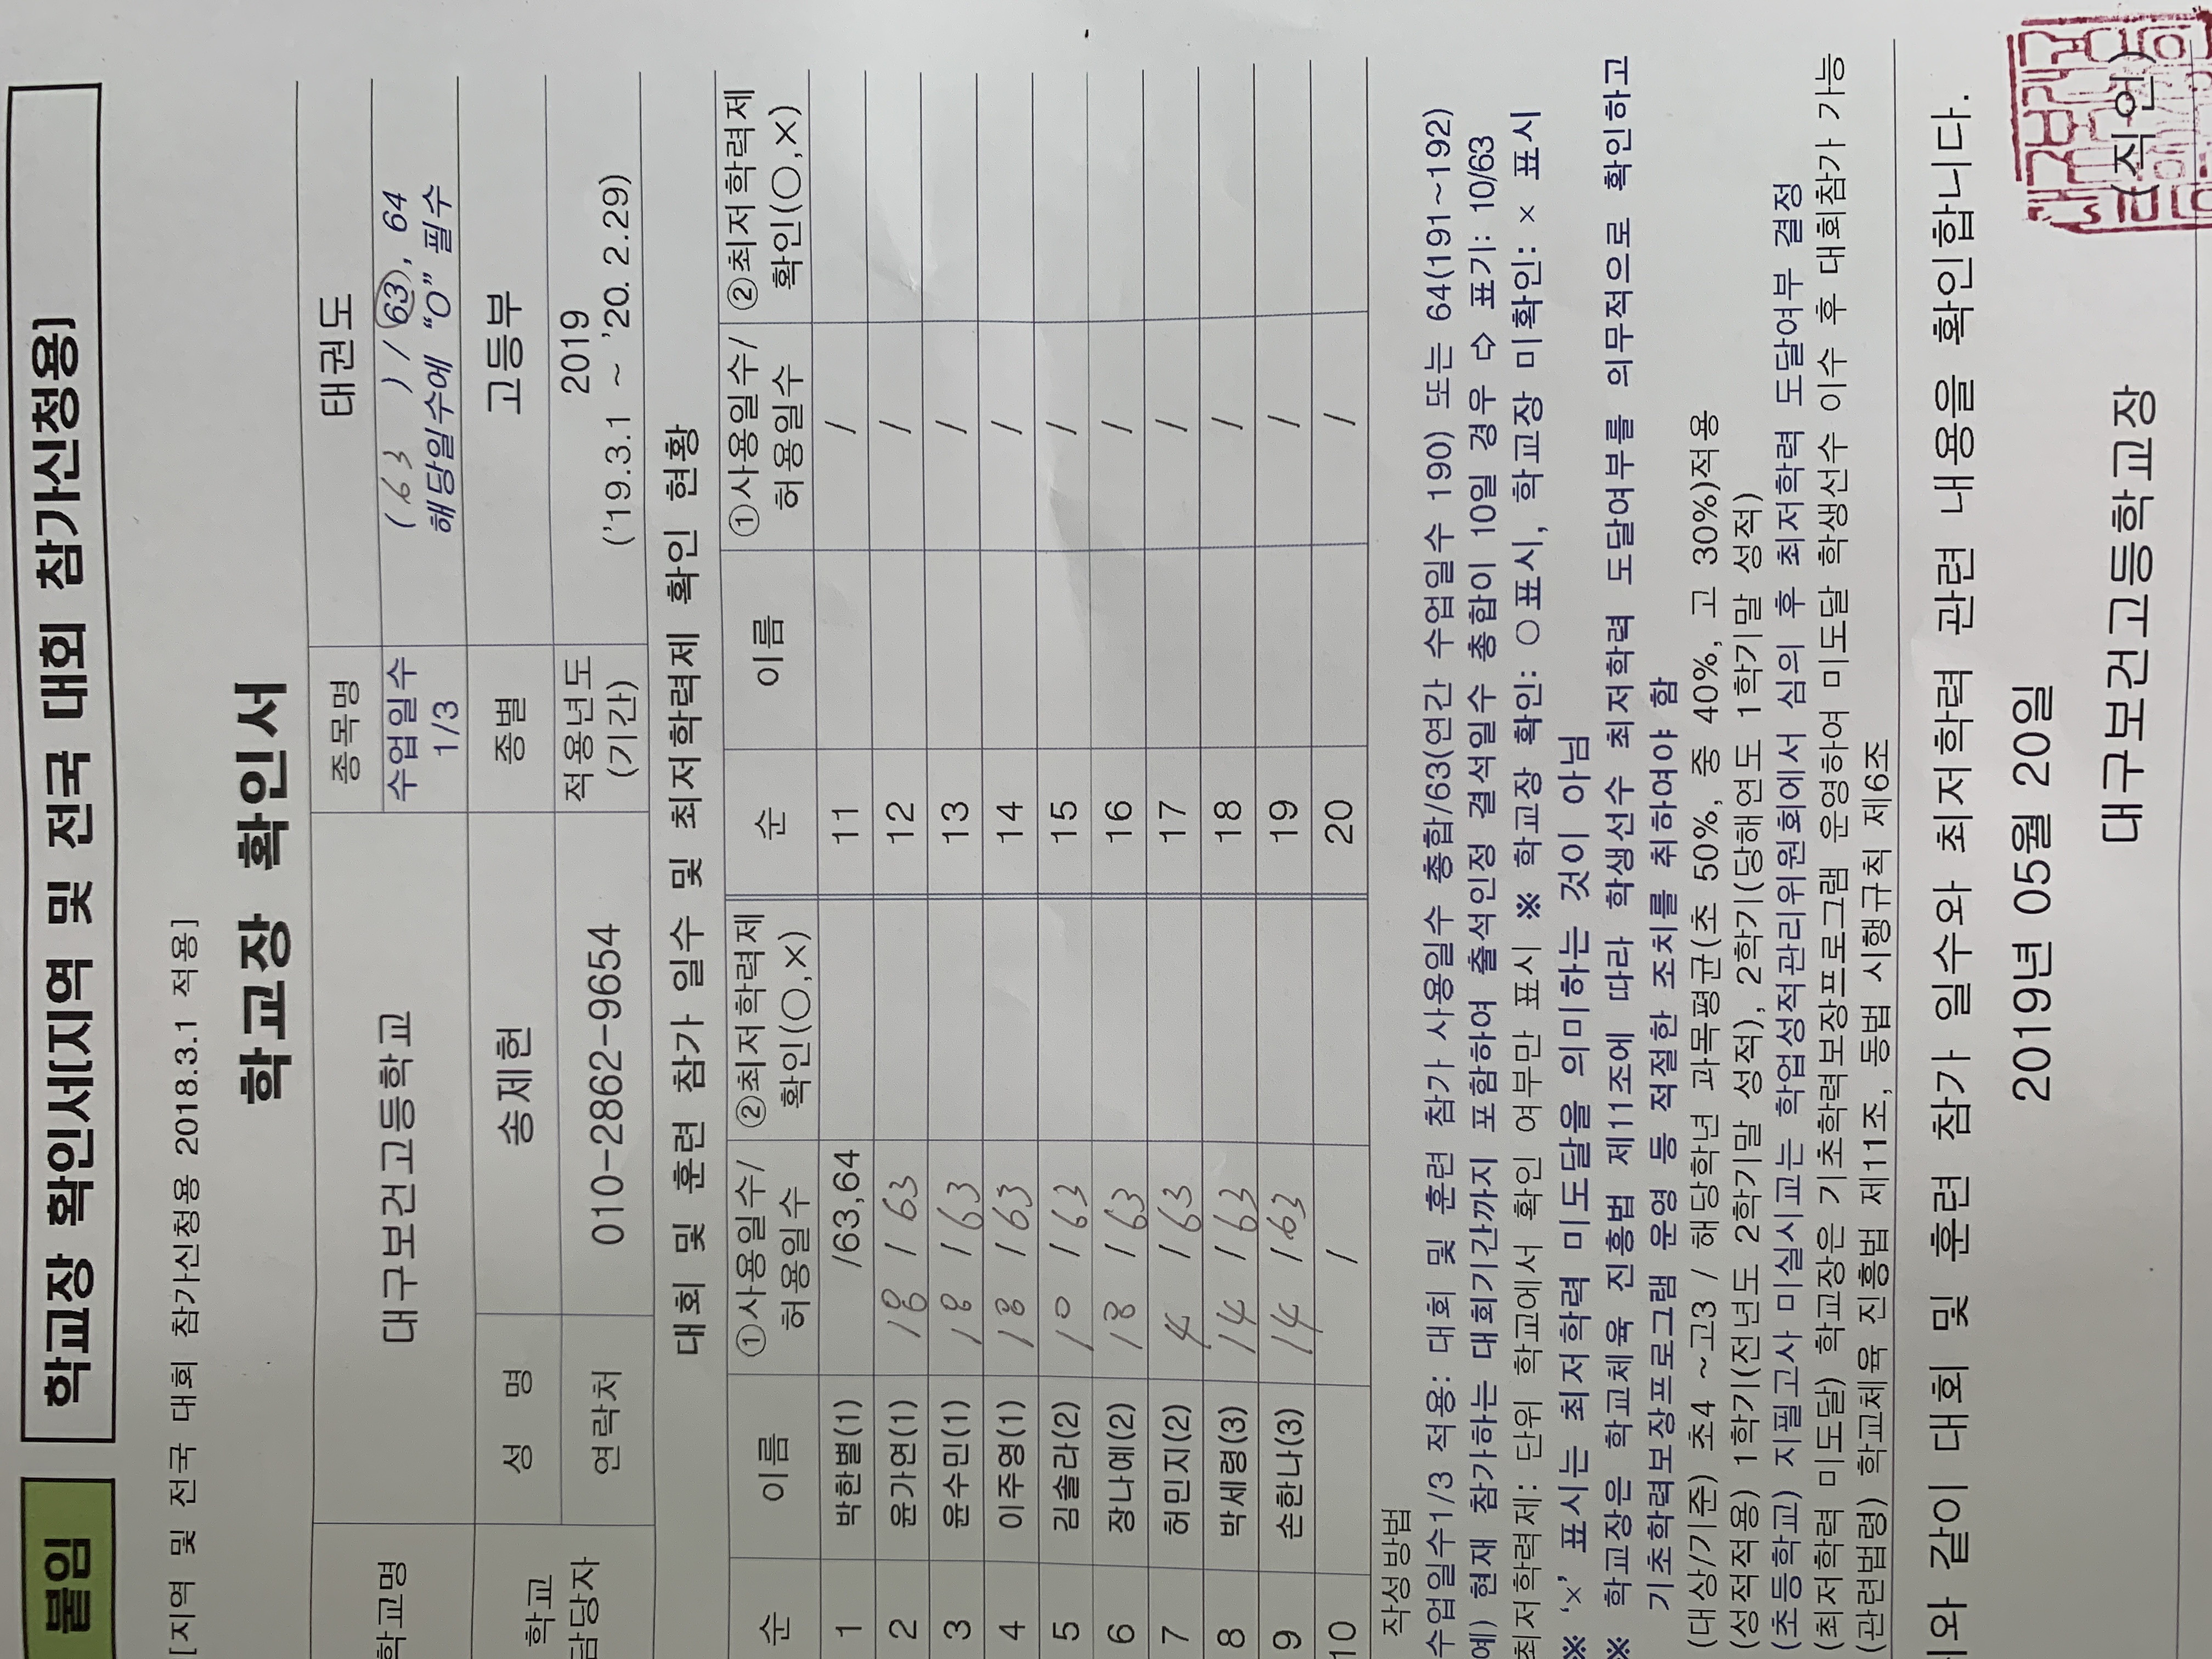 붙임 학교장 확인서(지역 및 전국 대회 참가신청용)
[지역 및 전국 대회 참가신청용 2018.3.1 적용]
학교장 확인서
학교명 대구보건고등학교 종목명 태권도
수업일수 1/3 ( 63 ) / 63, 64
해당일수에 “O” 필수
학교 담당자 성 명 송제헌 종별 고등부
연락처 010-2862-9654 적용년도 (기간) 2019
('19.3.1 ~ '20. 2.29)
대회 및 훈련 참가 일수 및 최저학력제 확인 현황
순 이름 ①사용일수/허용일수 ②최저학력제 확인(○,×) 순 이름 ①사용일수/허용일수 ②최저학력제 확인(○,×)
1 박한별(1) /63,64 11 /
2 윤가연(1) 18 / 63 12 /
3 윤수민(1) 18 / 63 13 /
4 이주영(1) 18 / 63 14 /
5 김솔라(2) 10 / 63 15 /
6 장나예(2) 18 / 63 16 /
7 허민지(2) 4 / 63 17 /
8 박세령(3) 14 / 63 18 /
9 손한나(3) 14 / 63 19 /
10 / 20 /
작성방법
수업일수1/3 적용: 대회 및 훈련 참가 사용일수 총합/63(연간 수업일수 190) 또는 64(191~192)
예) 현재 참가하는 대회기간까지 포함하여 출석인정 결석일수 총합이 10일 경우 ⇨ 표기: 10/63
최저학력제: 단위 학교에서 확인 여부만 표시 ※ 학교장 확인: ○ 표시, 학교장 미확인: × 표시
※ ‘×’ 표시는 최저학력 미도달을 의미하는 것이 아님
※ 학교장은 학교체육 진흥법 제11조에 따라 학생선수 최저학력 도달여부를 의무적으로 확인하고
기초학력보장프로그램 운영 등 적절한 조치를 취하여야 함
(대상/기준) 초4 ~고3 / 해당학년 과목평균(초 50%, 중 40%, 고 30%)적용
(성적적용) 1학기(전년도 2학기말 성적), 2학기(당해연도 1학기말 성적)
(초등학교) 지필고사 미실시교는 학업성적관리위원회에서 심의 후 최저학력 도달여부 결정
(최저학력 미도달) 학교장은 기초학력보장프로그램 운영하여 미도달 학생선수 이수 후 대회참가 가능
(관련법령) 학교체육 진흥법 제11조, 동법 시행규칙 제6조
위와 같이 대회 및 훈련 참가 일수와 최저학력 관련 내용을 확인합니다.
2019년 05월 20일
대구보건고등학교장 (직인)